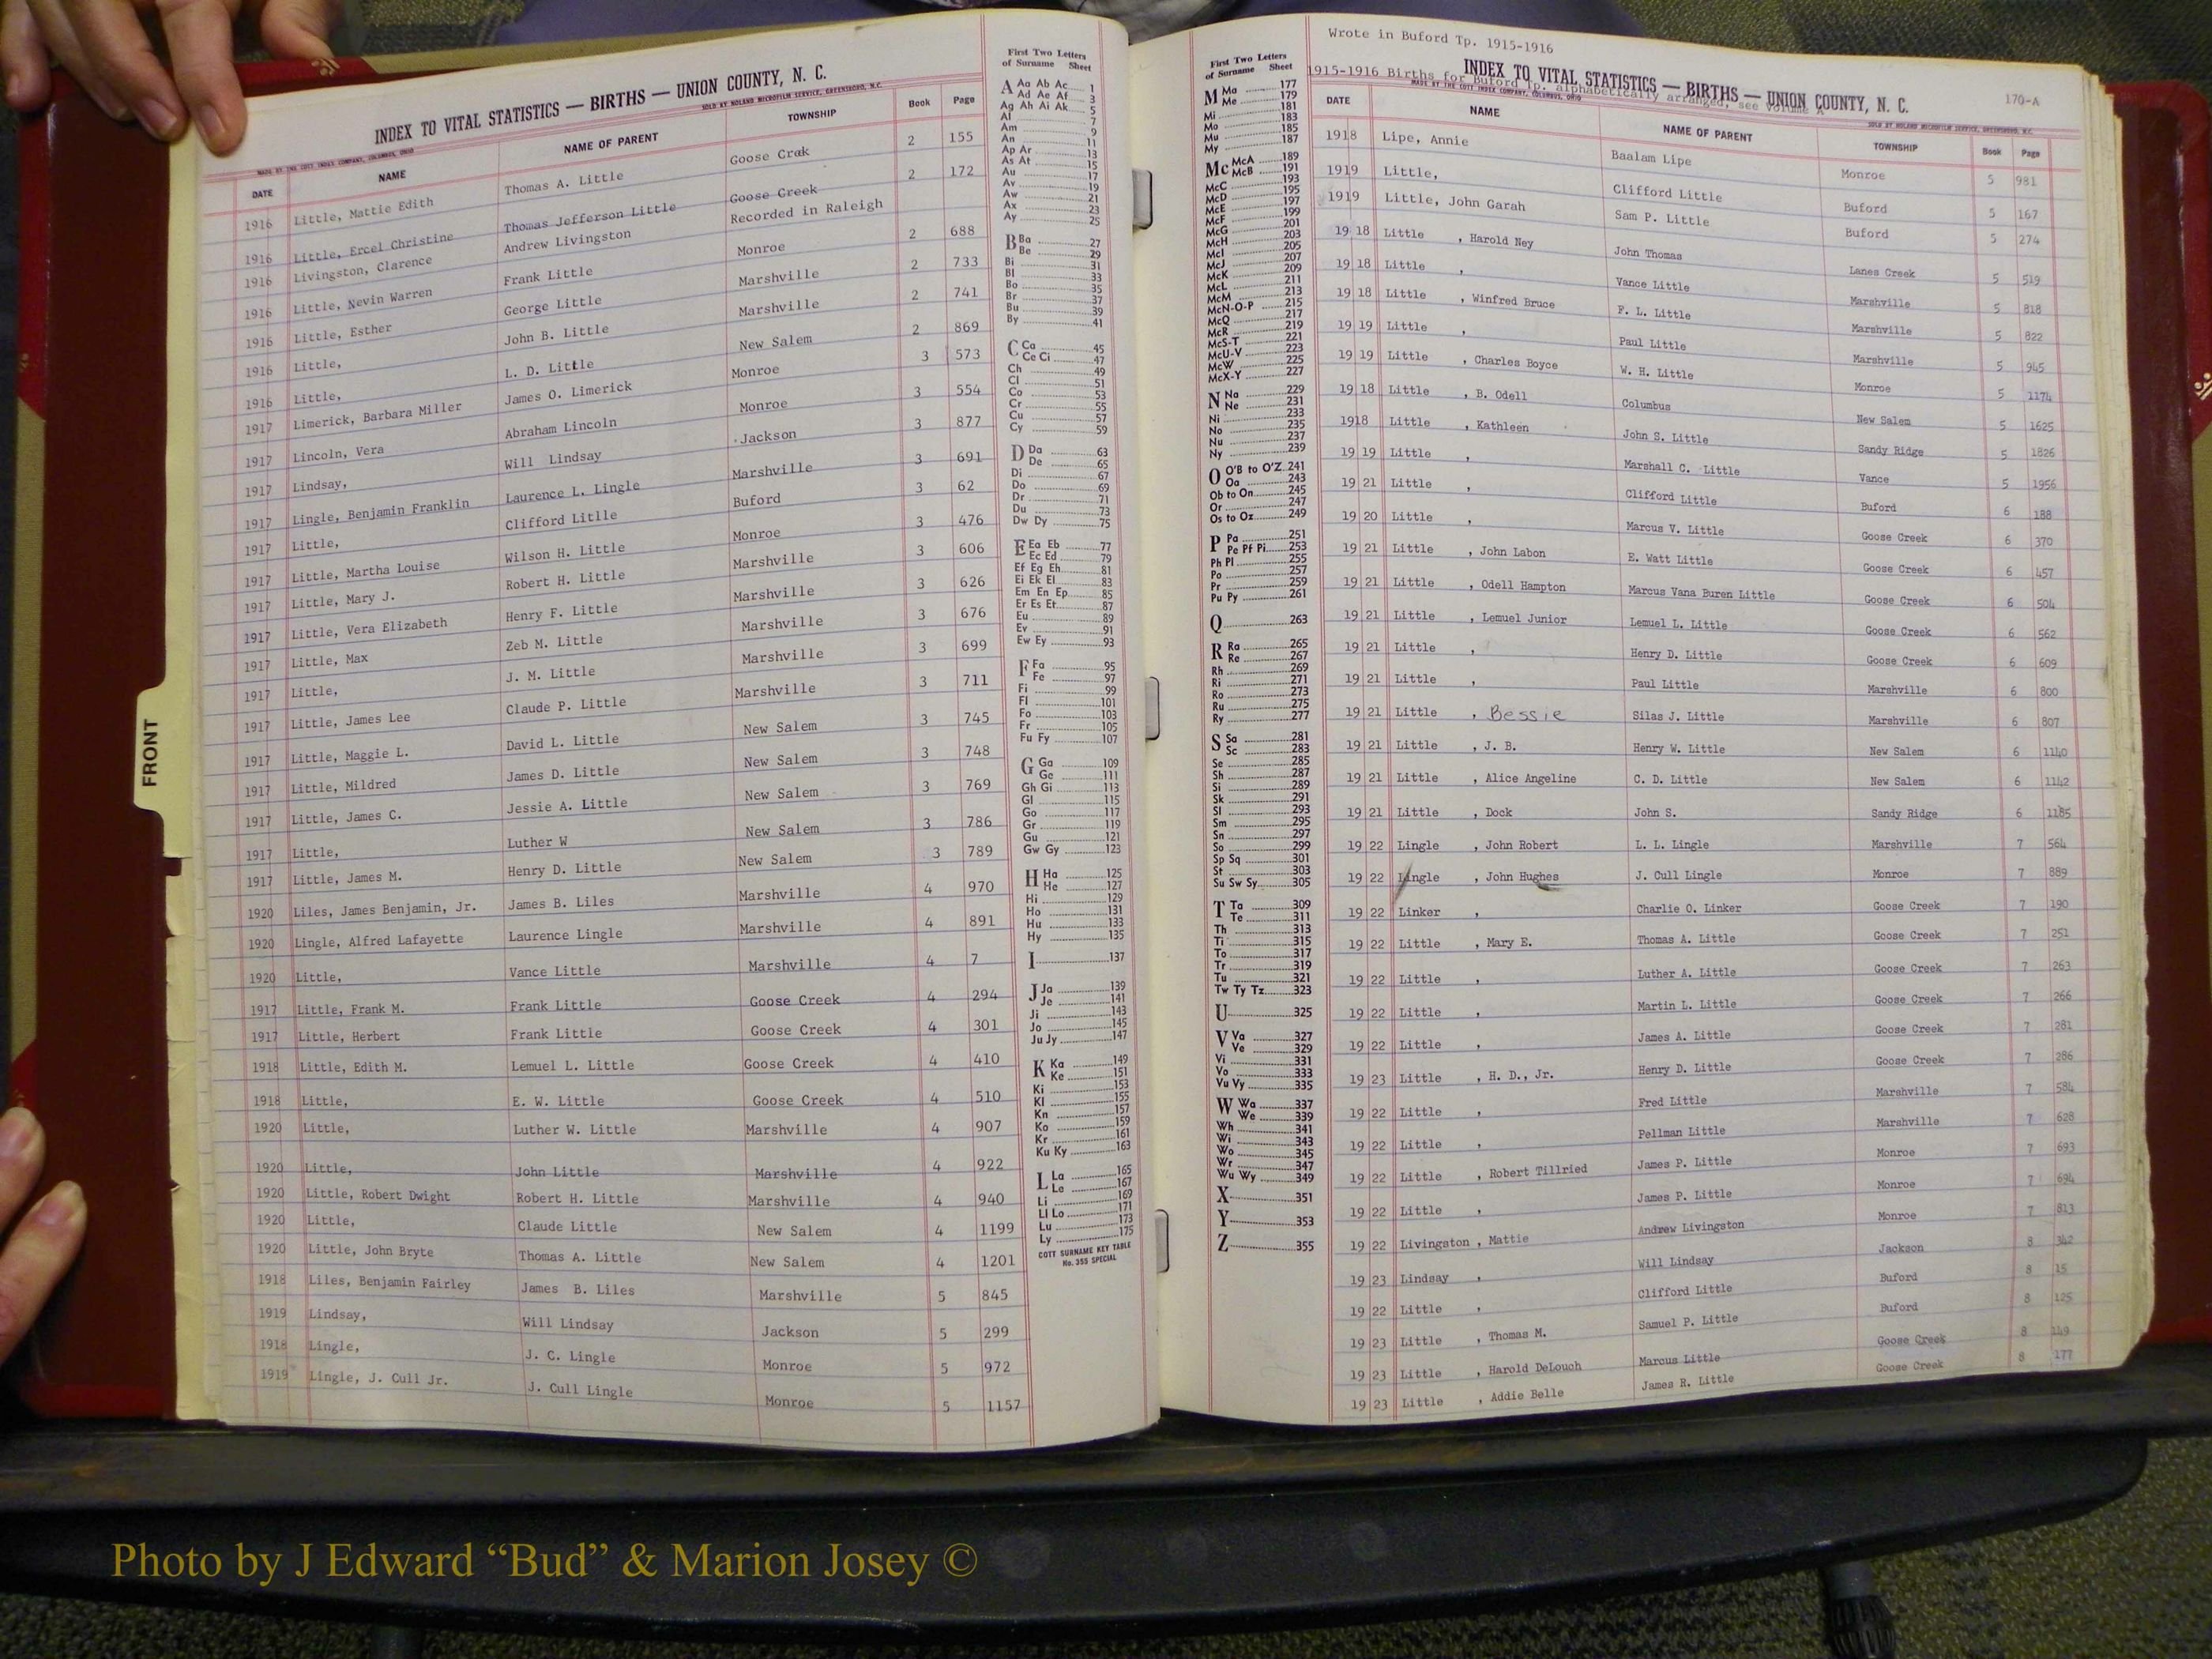 FRONT
INDEX TO VITAL STATISTICS — BIRTHS — UNION COUNTY, N. C.
MADE BY THE COTT INDEX COMPANY, COLUMBUS, OHIO SOLD BY NOLAND MICROFILM SERVICE, GREENSBORO, N.C.
DATE NAME NAME OF PARENT TOWNSHIP Book Page
1916 Little, Mattie Edith Thomas A. Little Goose Crek 2 155
1916 Little, Ercel Christine Thomas Jefferson Little Goose Creek 2 172
1916 Livingston, Clarence Andrew Livingston Recorded in Raleigh
1916 Little, Nevin Warren Frank Little Monroe 2 688
1916 Little, Esther George Little Marshville 2 733
1916 Little, John B. Little Marshville 2 741
1916 Little, L. D. Little New Salem 2 869
1917 Limerick, Barbara Miller James O. Limerick Monroe 3 573
1917 Lincoln, Vera Abraham Lincoln Monroe 3 554
1917 Lindsay, Will Lindsay Jackson 3 877
1917 Lingle, Benjamin Franklin Laurence L. Lingle Marshville 3 691
1917 Little, Clifford Litlle Buford 3 62
1917 Little, Martha Louise Wilson H. Little Monroe 3 476
1917 Little, Mary J. Robert H. Little Marshville 3 606
1917 Little, Vera Elizabeth Henry F. Little Marshville 3 626
1917 Little, Max Zeb M. Little Marshville 3 676
1917 Little, J. M. Little Marshville 3 699
1917 Little, James Lee Claude P. Little Marshville 3 711
1917 Little, Maggie L. David L. Little New Salem 3 745
1917 Little, Mildred James D. Little New Salem 3 748
1917 Little, James C. Jessie A. Little New Salem 3 769
1917 Little, Luther W New Salem 3 786
1917 Little, James M. Henry D. Little New Salem 3 789
1920 Liles, James Benjamin, Jr. James B. Liles Marshville 4 970
1920 Lingle, Alfred Lafayette Laurence Lingle Marshville 4 891
1920 Little, Vance Little Marshville 4 7
1917 Little, Frank M. Frank Little Goose Creek 4 294
1917 Little, Herbert Frank Little Goose Creek 4 301
1918 Little, Edith M. Lemuel L. Little Goose Creek 4 410
1918 Little, E. W. Little Goose Creek 4 510
1920 Little, Luther W. Little Marshville 4 907
1920 Little, John Little Marshville 4 922
1920 Little, Robert Dwight Robert H. Little Marshville 4 940
1920 Little, Claude Little New Salem 4 1199
1920 Little, John Bryte Thomas A. Little New Salem 4 1201
1918 Liles, Benjamin Fairley James B. Liles Marshville 5 845
1919 Lindsay, Will Lindsay Jackson 5 299
1918 Lingle, J. C. Lingle Monroe 5 972
1919 Lingle, J. Cull Jr. J. Cull Lingle Monroe 5 1157
First Two Letters
of Surname Sheet
A Aa Ab Ac 1
Ad Ae Af 3
Ag Ah Ai Ak 5
Al 7
Am 9
An 11
Ap Ar 13
As At 15
Au 17
Av 19
Aw 21
Ax 23
Ay 25
B Ba 27
Be 29
Bi 31
Bl 33
Bo 35
Br 37
Bu 39
By 41
C Ca 45
Ce Ci 47
Ch 49
Cl 51
Co 53
Cr 55
Cu 57
Cy 59
D Da 63
De 65
Di 67
Do 69
Dr 71
Du 73
Dw Dy 75
E Ea Eb 77
Ec Ed 79
Ef Eg Eh 81
Ei Ek El 83
Em En Ep 85
Er Es Et 87
Eu 89
Ev 91
Ew Ey 93
F Fa 95
Fe 97
Fi 99
Fl 101
Fo 103
Fr 105
Fu Fy 107
G Ga 109
Ge 111
Gh Gi 113
Gl 115
Go 117
Gr 119
Gu 121
Gw Gy 123
H Ha 125
He 127
Hi 129
Ho 131
Hu 133
Hy 135
I 137
J Ja 139
Je 141
Ji 143
Jo 145
Ju Jy 147
K Ka 149
Ke 151
Ki 153
Kl 155
Kn 157
Ko 159
Kr 161
Ku Ky 163
L La 165
Le 167
Li 169
Ll Lo 171
Lu 173
Ly 175
COTT SURNAME KEY TABLE
No. 355 SPECIAL
First Two Letters
of Surname Sheet
M Ma 177
Me 179
Mi 181
Mo 183
Mu 185
My 187
Mc McA 189
McB 191
McC 193
McD 195
McE 197
McF 199
McG 201
McH 203
McI 205
McJ 207
McK 209
McL 211
McM 213
McN-O-P 215
McQ 217
McR 219
McS-T 221
McU-V 223
McW 225
McX-Y 227
N Na 229
Ne 231
Ni 233
No 235
Nu 237
Ny 239
O O'B to O'Z 241
Oa 243
Ob to On 245
Or 247
Os to Oz 249
P Pa 251
Pe Pf Pi 253
Ph Pl 255
Po 257
Pr 259
Pu Py 261
Q 263
R Ra 265
Re 267
Rh 269
Ri 271
Ro 273
Ru 275
Ry 277
S Sa 281
Sc 283
Se 285
Sh 287
Si 289
Sk 291
Sl 293
Sm 295
Sn 297
So 299
Sp Sq 301
St 303
Su Sw Sy 305
T Ta 309
Te 311
Th 313
Ti 315
To 317
Tr 319
Tu 321
Tw Ty Tz 323
U 325
V Va 327
Ve 329
Vi 331
Vo 333
Vu Vy 335
W Wa 337
We 339
Wh 341
Wi 343
Wo 345
Wr 347
Wu Wy 349
X 351
Y 353
Z 355
Wrote in Buford Tp. 1915-1916
1915-1916 Births for Buford Tp. alphabetically arranged, see Volume A
INDEX TO VITAL STATISTICS — BIRTHS — UNION COUNTY, N. C. 170-A
MADE BY THE COTT INDEX COMPANY, COLUMBUS, OHIO SOLD BY NOLAND MICROFILM SERVICE, GREENSBORO, N.C.
DATE NAME NAME OF PARENT TOWNSHIP Book Page
1918 Lipe, Annie Baalam Lipe Monroe 5 981
1919 Little, Clifford Little Buford 5 167
1919 Little, John Garah Sam P. Little Buford 5 274
19 18 Little , Harold Ney John Thomas Lanes Creek 5 519
19 18 Little , Vance Little Marshville 5 818
19 18 Little , Winfred Bruce F. L. Little Marshville 5 822
19 19 Little , Paul Little Marshville 5 945
19 19 Little , Charles Boyce W. H. Little Monroe 5 1174
19 18 Little , B. Odell Columbus New Salem 5 1625
1918 Little , Kathleen John S. Little Sandy Ridge 5 1826
19 19 Little , Marshall C. Little Vance 5 1956
19 21 Little , Clifford Little Buford 6 188
19 20 Little , Marcus V. Little Goose Creek 6 370
19 21 Little , John Labon E. Watt Little Goose Creek 6 457
19 21 Little , Odell Hampton Marcus Vana Buren Little Goose Creek 6 504
19 21 Little , Lemuel Junior Lemuel L. Little Goose Creek 6 562
19 21 Little , Henry D. Little Goose Creek 6 609
19 21 Little , Paul Little Marshville 6 800
19 21 Little , Bessie Silas J. Little Marshville 6 807
19 21 Little , J. B. Henry W. Little New Salem 6 1140
19 21 Little , Alice Angeline C. D. Little New Salem 6 1142
19 21 Little , Dock John S. Sandy Ridge 6 1185
19 22 Lingle , John Robert L. L. Lingle Marshville 7 564
19 22 Lingle , John Hughes J. Cull Lingle Monroe 7 889
19 22 Linker , Charlie O. Linker Goose Creek 7 190
19 22 Little , Mary E. Thomas A. Little Goose Creek 7 251
19 22 Little , Luther A. Little Goose Creek 7 263
19 22 Little , Martin L. Little Goose Creek 7 266
19 22 Little , James A. Little Goose Creek 7 281
19 23 Little , H. D., Jr. Henry D. Little Goose Creek 7 286
19 22 Little , Fred Little Marshville 7 584
19 22 Little , Pellman Little Marshville 7 628
19 22 Little , Robert Tillried James P. Little Monroe 7 693
19 22 Little , James P. Little Monroe 7 694
19 22 Livingston , Mattie Andrew Livingston Monroe 7 813
19 23 Lindsay , Will Lindsay Jackson 8 342
19 22 Little , Clifford Little Buford 8 15
19 23 Little , Thomas M. Samuel P. Little Buford 8 125
19 23 Little , Harold DeLouch Marcus Little Goose Creek 8
19 23 Little , Addie Belle James R. Little Goose Creek 8 177
Photo by J Edward “Bud” & Marion Josey ©